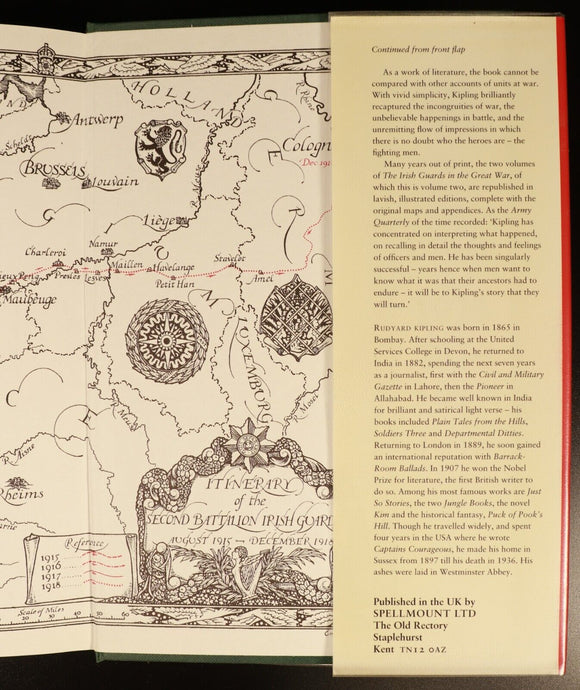 HOLLAND
Antwerp
R. Scheldt
BRUSSELS
Louvain
Cologn
Dec 191
R. Meuse
Liège
Namur
Charleroi
Maillen
Havelange
Stavelot
Presles
Lesves
Petit Han
Amel
Maubeuge
LUXEMBURG
R. Mosel
R. Aisne
Rheims
ITINERARY
of the
SECOND BATTALION IRISH GUAR
AUGUST 1915 — DECEMBER 1918
Reference
1915
1916
1917
1918
Scale of Miles
Continued from front flap
As a work of literature, the book cannot be
compared with other accounts of units at war.
With vivid simplicity, Kipling brilliantly
recaptured the incongruities of war, the
unbelievable happenings in battle, and the
unremitting flow of impressions in which
there is no doubt who the heroes are – the
fighting men.
Many years out of print, the two volumes
of The Irish Guards in the Great War, of
which this is volume two, are republished in
lavish, illustrated editions, complete with the
original maps and appendices. As the Army
Quarterly of the time recorded: 'Kipling has
concentrated on interpreting what happened,
on recalling in detail the thoughts and feelings
of officers and men. He has been singularly
successful – years hence when men want to
know what it was that their ancestors had to
endure – it will be to Kipling's story that they
will turn.'
RUDYARD KIPLING was born in 1865 in
Bombay. After schooling at the United
Services College in Devon, he returned to
India in 1882, spending the next seven years
as a journalist, first with the Civil and Military
Gazette in Lahore, then the Pioneer in
Allahabad. He became well known in India
for brilliant and satirical light verse – his
books included Plain Tales from the Hills,
Soldiers Three and Departmental Ditties.
Returning to London in 1889, he soon gained
an international reputation with Barrack-
Room Ballads. In 1907 he won the Nobel
Prize for literature, the first British writer to
do so. Among his most famous works are Just
So Stories, the two Jungle Books, the novel
Kim and the historical fantasy, Puck of Pook's
Hill. Though he travelled widely, and spent
four years in the USA where he wrote
Captains Courageous, he made his home in
Sussex from 1897 till his death in 1936. His
ashes were laid in Westminster Abbey.
Published in the UK by
SPELLMOUNT LTD
The Old Rectory
Staplehurst
Kent TN12 0AZ